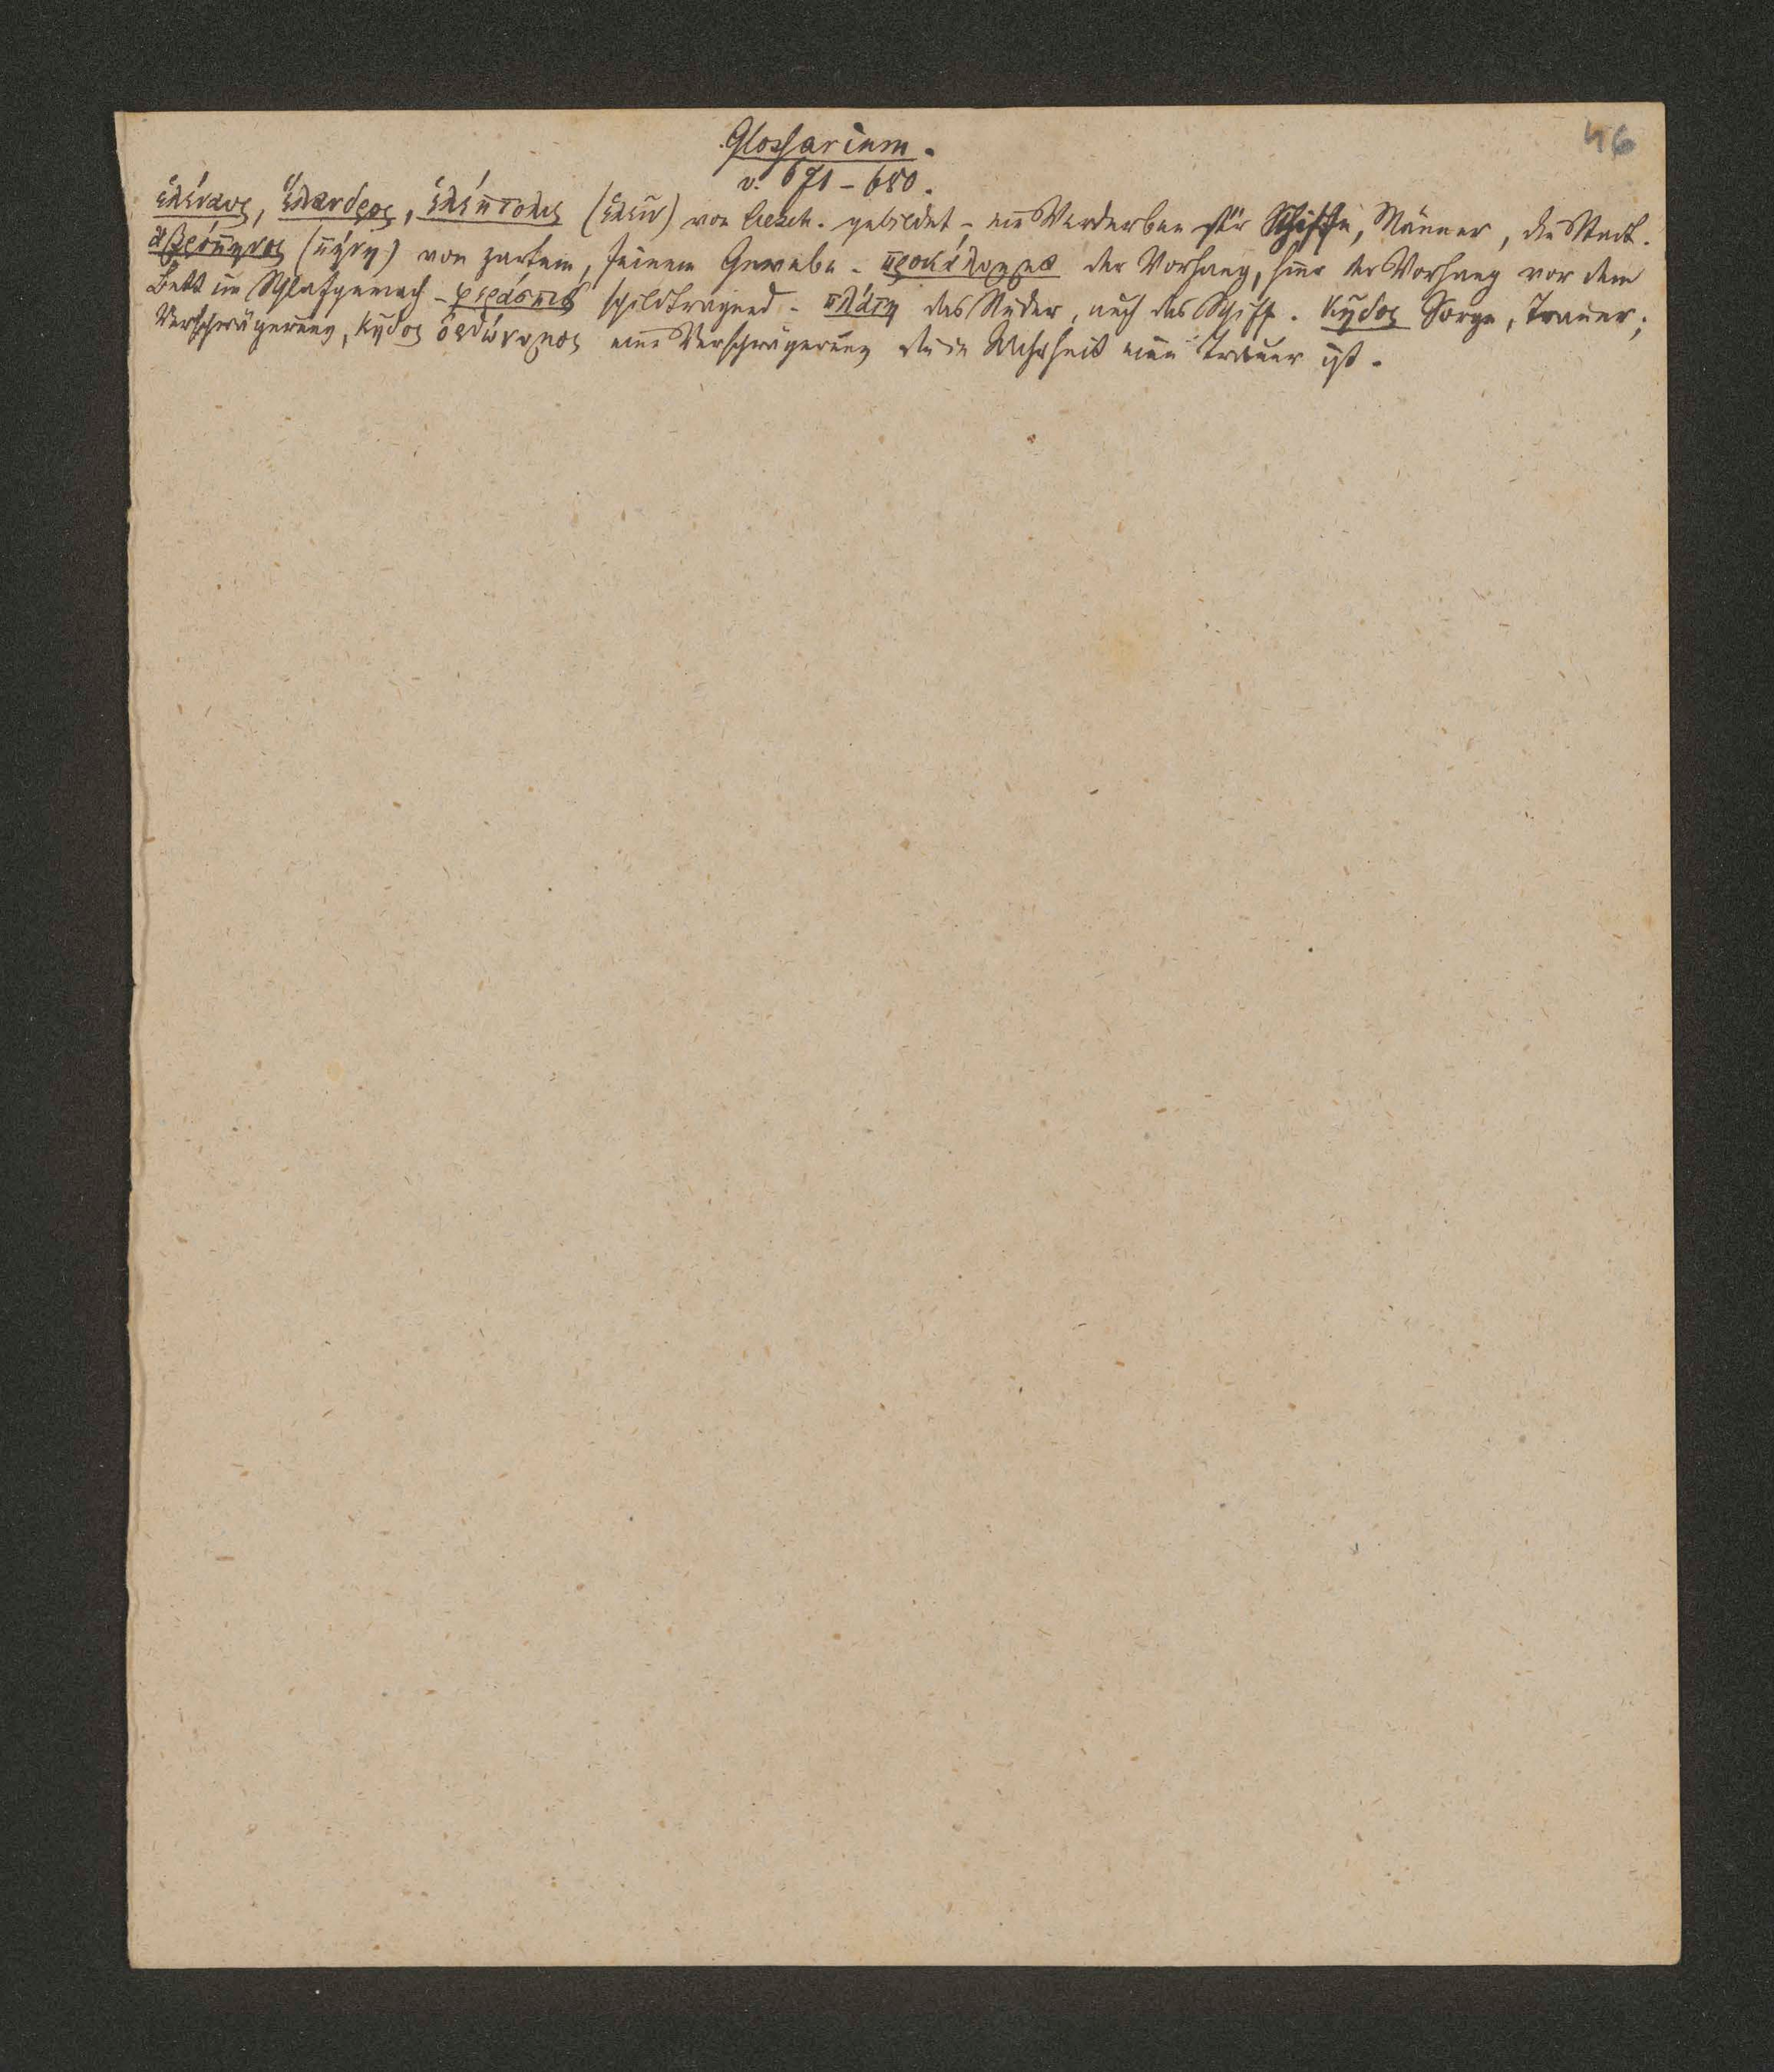 46
Glossarium.
v. 671 - 680.
ἑλέναυς, ἕλανδρος, ἑλέπτολις (ἑλεῖν) von Aesch. gebildet, ein Verderben für Schiffe, Männer, die Stadt.
ἁβρόπηνος (πήνη) von zartem, feinem Gewebe - προκάλυμμα der Vorhang, hier der Vorhang vor dem
Bett im Schlafgemach - φεράσπις schildtragend - πλάτη das Ruder, auch das Schiff. κῆδος Sorge, Trauer;
Verschwägerung, κῆδος ὀρθώνυμος eine Verschwägerung die in Wahrheit eine Trauer ist.